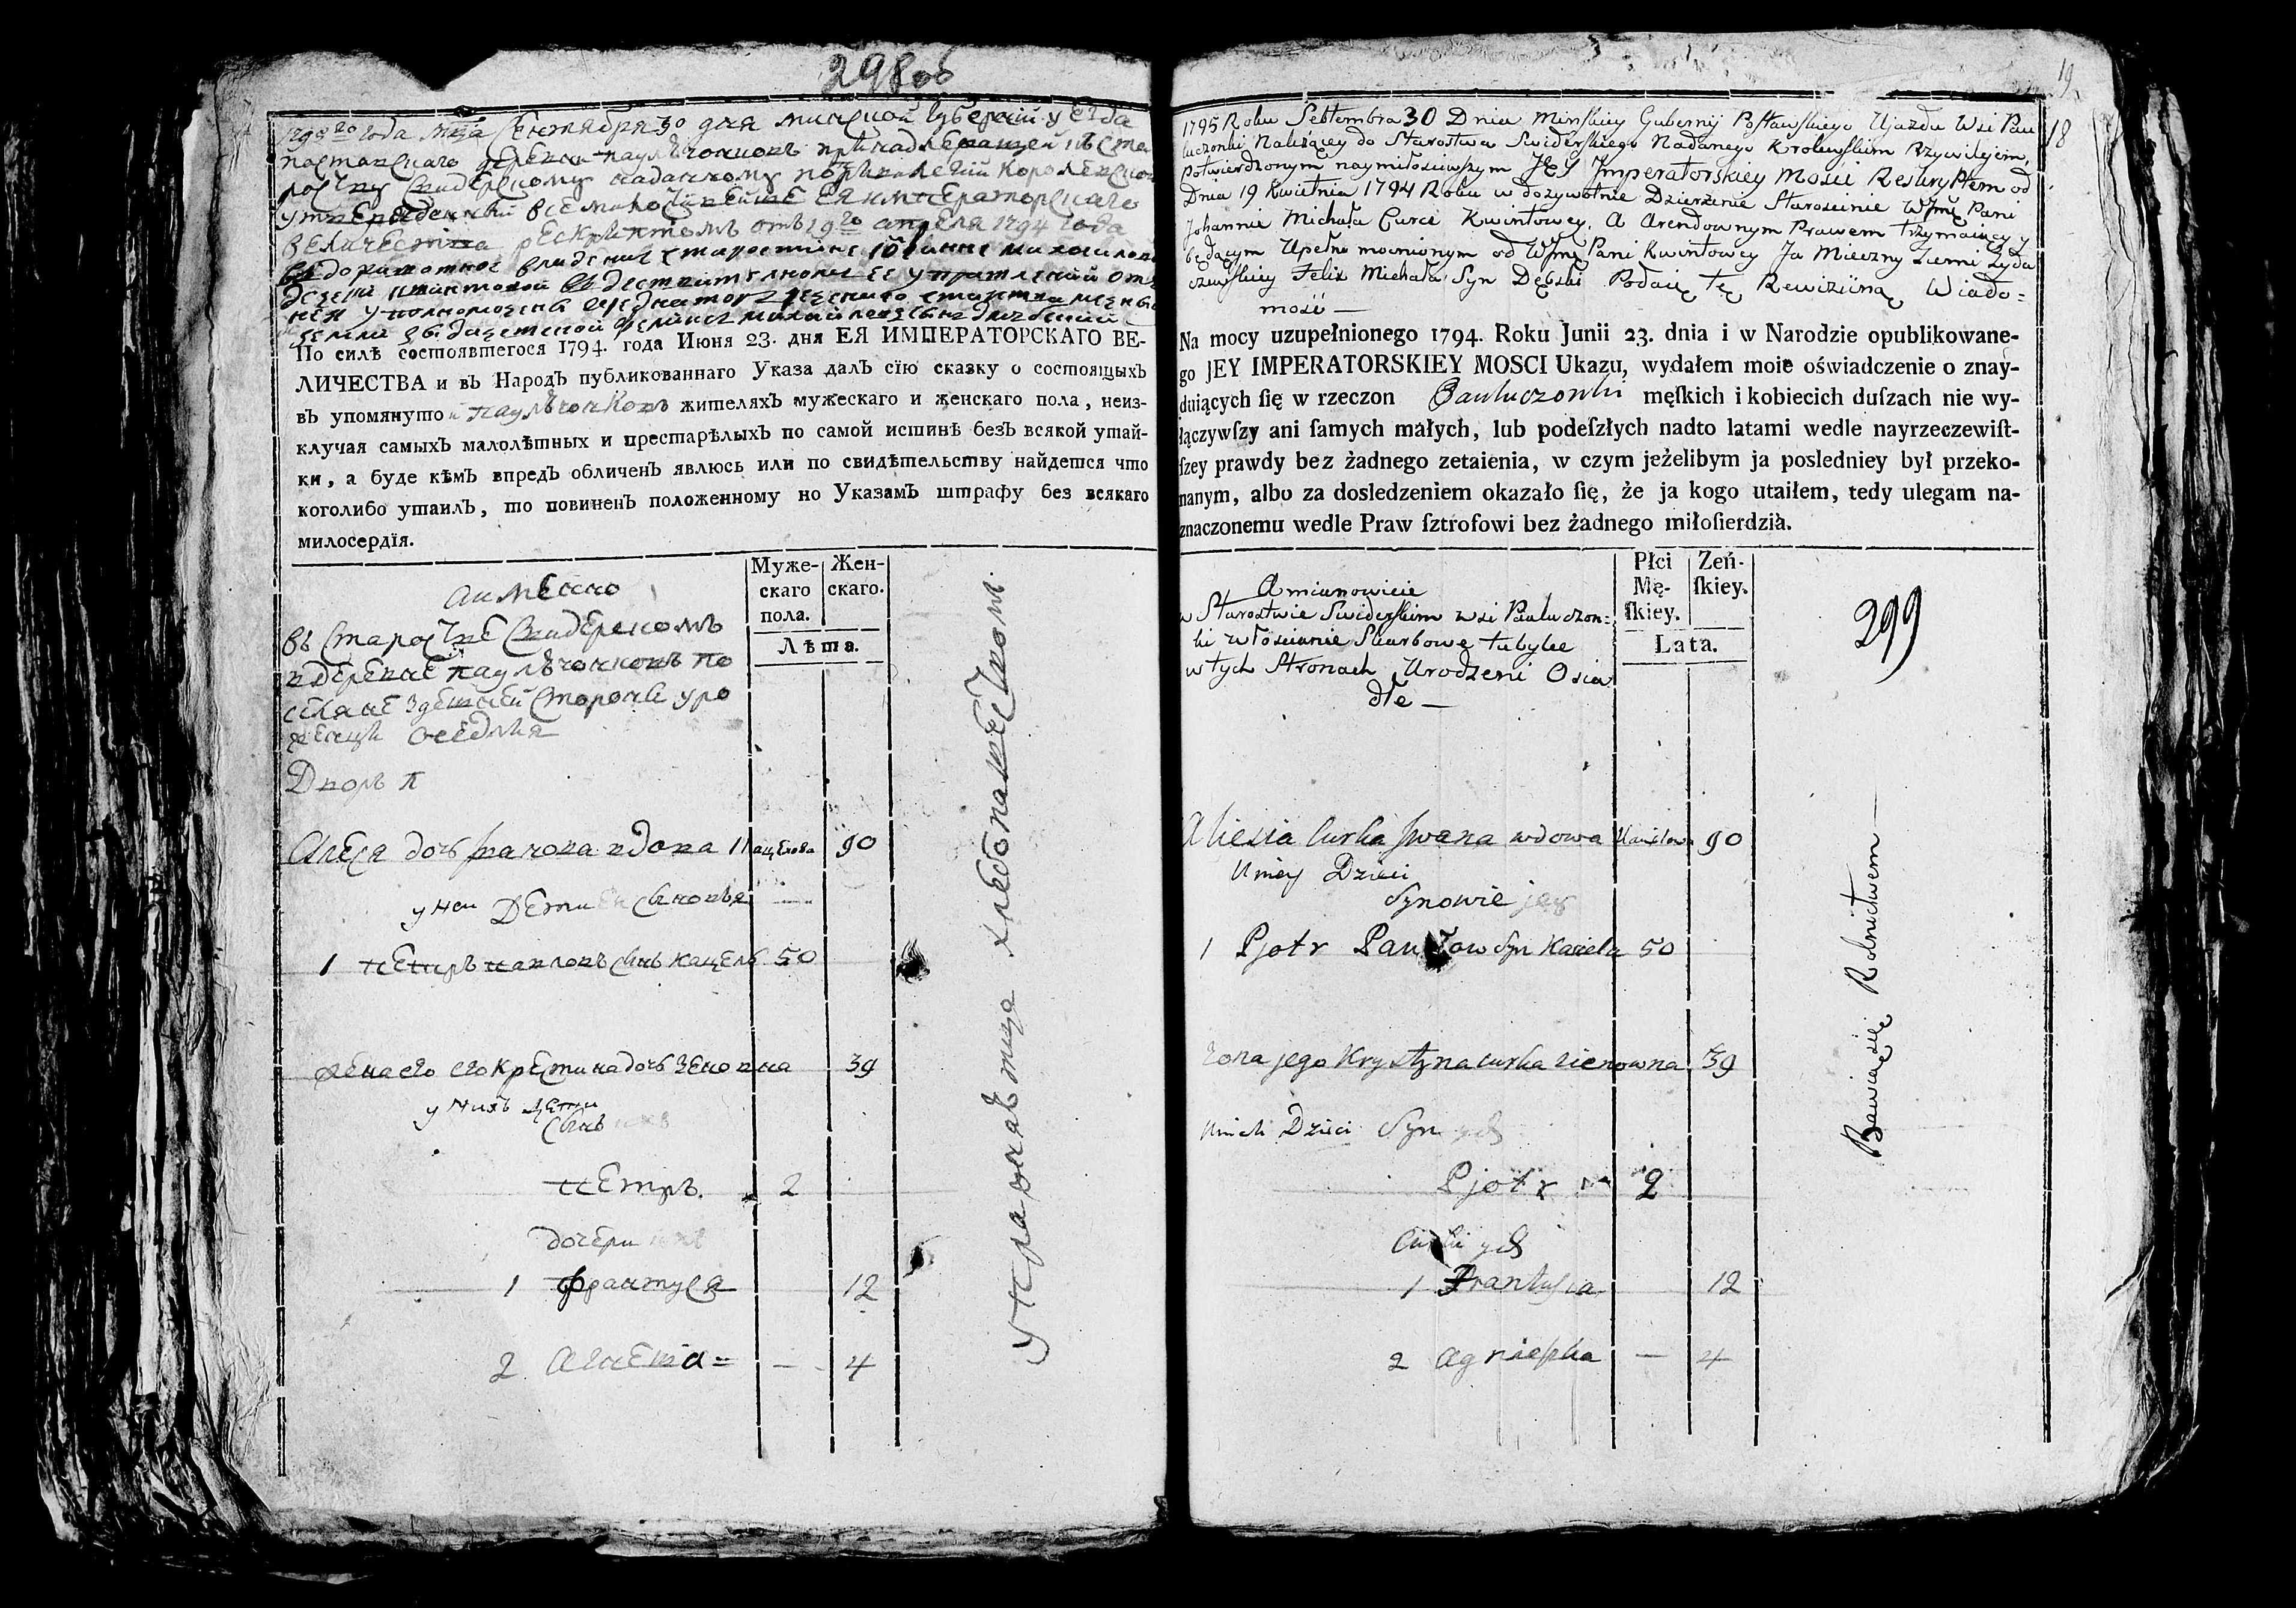 298об
1795го года мца Сентября 30 дня минской Губернии уезда
поставского деревни паулючонковъ принадлежащей къ ста
роству Свидерскому наданному по привилегии королевской
утвержденный всемилостивейше Ея императорскаго
величества рескриптомъ отъ 19го апреля 1794 года
в доживотное владение старостине Иоанне михайловой
дочери квинтовой
земли
По силѣ состоявшегося 1794. года Июня 23. дня ЕЯ ИМПЕРАТОРСКАГО ВЕ-
ЛИЧЕСТВА и въ Народъ публикованнаго Указа далъ сїю сказку о состоящыхъ
въ упомянуто й паулючонковъ жителяхъ мужескаго и женскаго пола, неиз-
ключая самыхъ малолѣтныхъ и престарѣлыхъ по самой истинѣ безъ всякой утай-
ки, а буде кѣмъ впредъ обличенъ явлюсь или по свидѣтельству найдется что
коголибо утаилъ, то повиненъ положенному но Указамъ штрафу без всякаго
милосердїя.
Муже-
скаго
пола.
Жен-
скаго.
Лѣта.
а имЕнно
въ Старостве Свидерскомъ
в деревне паулючонковъ по
селяне здешней стороны уро
женцы оседлия
Дворъ п
Алеся дочь вдова Кацелова 90
у неи Дети Сыновья
1 петръ павловъ Сынъ кацель 50
жена его его Крестина дочь зеновна 39
у нихъ дети
Сынъ ихъ
петръ. 2
дочери ихъ
1 Франтуся 12
2 Агнешка = — 4
упражняютца хлебопашеством
19
18
1795 Roku Sebtembra 30 Dnia Minskiey Gubernij Postawskiego Ujazdu Wsi Pau
luczonki Należącey do Starostwa Swiderskiego Nadanego Krolewskim Przywilejem,
potwierdzonym naymiłosciwszym JEY Imperatorskiey Mosci Reskryptem od
Dnia 19 Kwietnia 1794 Roku w dożywotnie Dzierżenie Staroscinie WJmę Pani
Johannie Michała Curce Kwintowey, A Arendownym Prawem trzymaiący y
będącym Upełno mocnionym od WJmę Pani Kwintowey Ja Mieczny Ziemi Zyda
czewskiey Felix Michała Syn Dębski Podaię tę Rewizijną Wiado=
mość —
Na mocy uzupełnionego 1794. Roku Junii 23. dnia i w Narodzie opublikowane-
go JEY IMPERATORSKIEY MOSCI Ukazu, wydałem moie oświadczenie o znay-
duiących ſię w rzeczon Pauluczonki męſkich i kobiecich duſzach nie wy-
łączywſzy ani ſamych małych, lub podeſzłych nadto latami wedle nayrzeczewiſt-
ſzey prawdy bez żadnego zetaienia, w czym jeżelibym ja posledniey był przeko-
nanym, albo za dosledzeniem okazało ſię, że ja kogo utaiłem, tedy ulegam na-
znaczonemu wedle Praw ſztrofowi bez żadnego miłoſierdzia.
Płci
Mę-
ſkiey.
Zeń-
ſkiey.
Lata.
299
Amianowicie
w Starostwie Swiderskim wsi Pauluczon=
ki włoscianie Skarbowe tubylce
w tych Stronach Urodzeni Osia
dłe —
Aliesia Curka Jwana wdowa 90
Uniey Dzieci
Synowie jey
1 Pjotr Pawłow Syn Kaciela 50
żona jego Krystyna curka zienowna 39
Unich Dzieci Syn ych
Pjotr 2
Curki ych
1 Frantusia 12
2 Agnieszka — 4
Bawią się Rolnictwem —